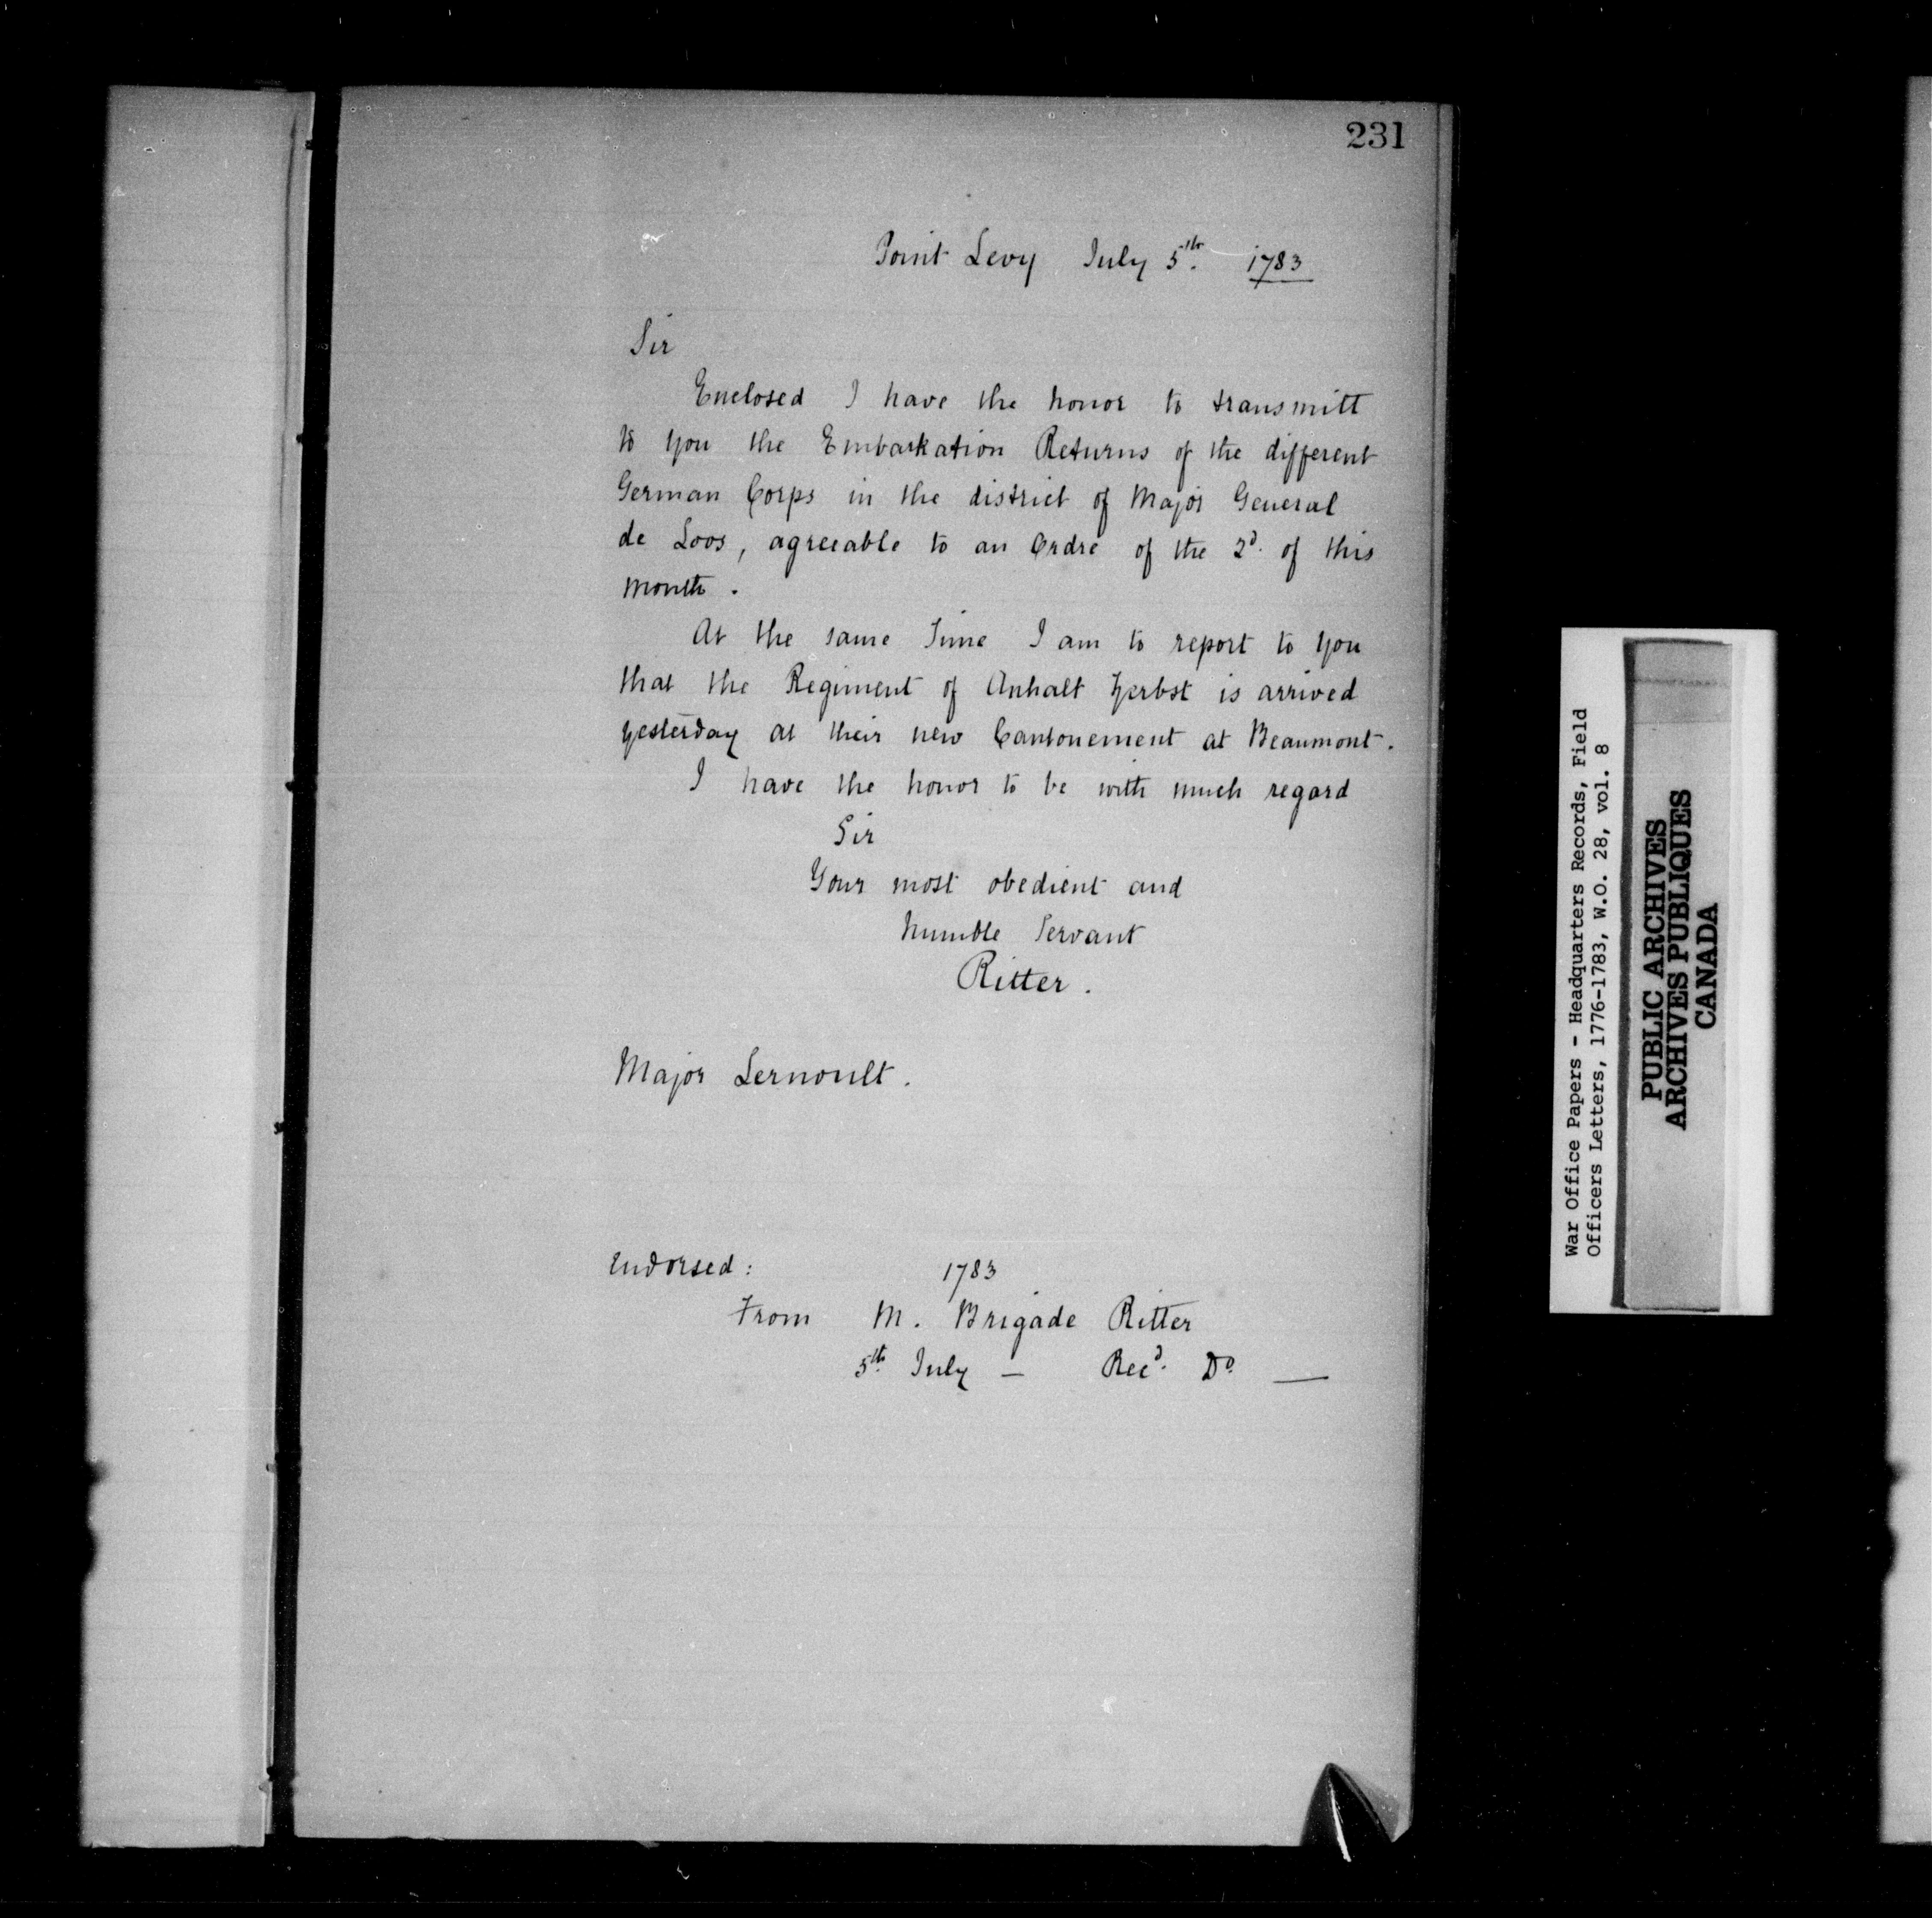 231
Point Levy July 5th. 1783
Sir
Enclosed I have the honor to transmitt
to you the Embarkation Returns of the different
German Corps in the district of Major General
de Loos, agreeable to an Ordre of the 2d. of this
month.
At the same Time I am to report to you
that the Regiment of Anhalt Zerbst is arrived
yesterday at their new Cantonement at Beaumont.
I have the honor to be with much regard
Sir
Your most obedient and
humble Servant
Ritter.
Major Lernoult.
Endorsed: 1783
From M. Brigade Ritter
5th. July — Rec'd. Do. —
War Office Papers - Headquarters Records, Field
Officers Letters, 1776-1783, W.O. 28, vol. 8
PUBLIC ARCHIVES
ARCHIVES PUBLIQUES
CANADA